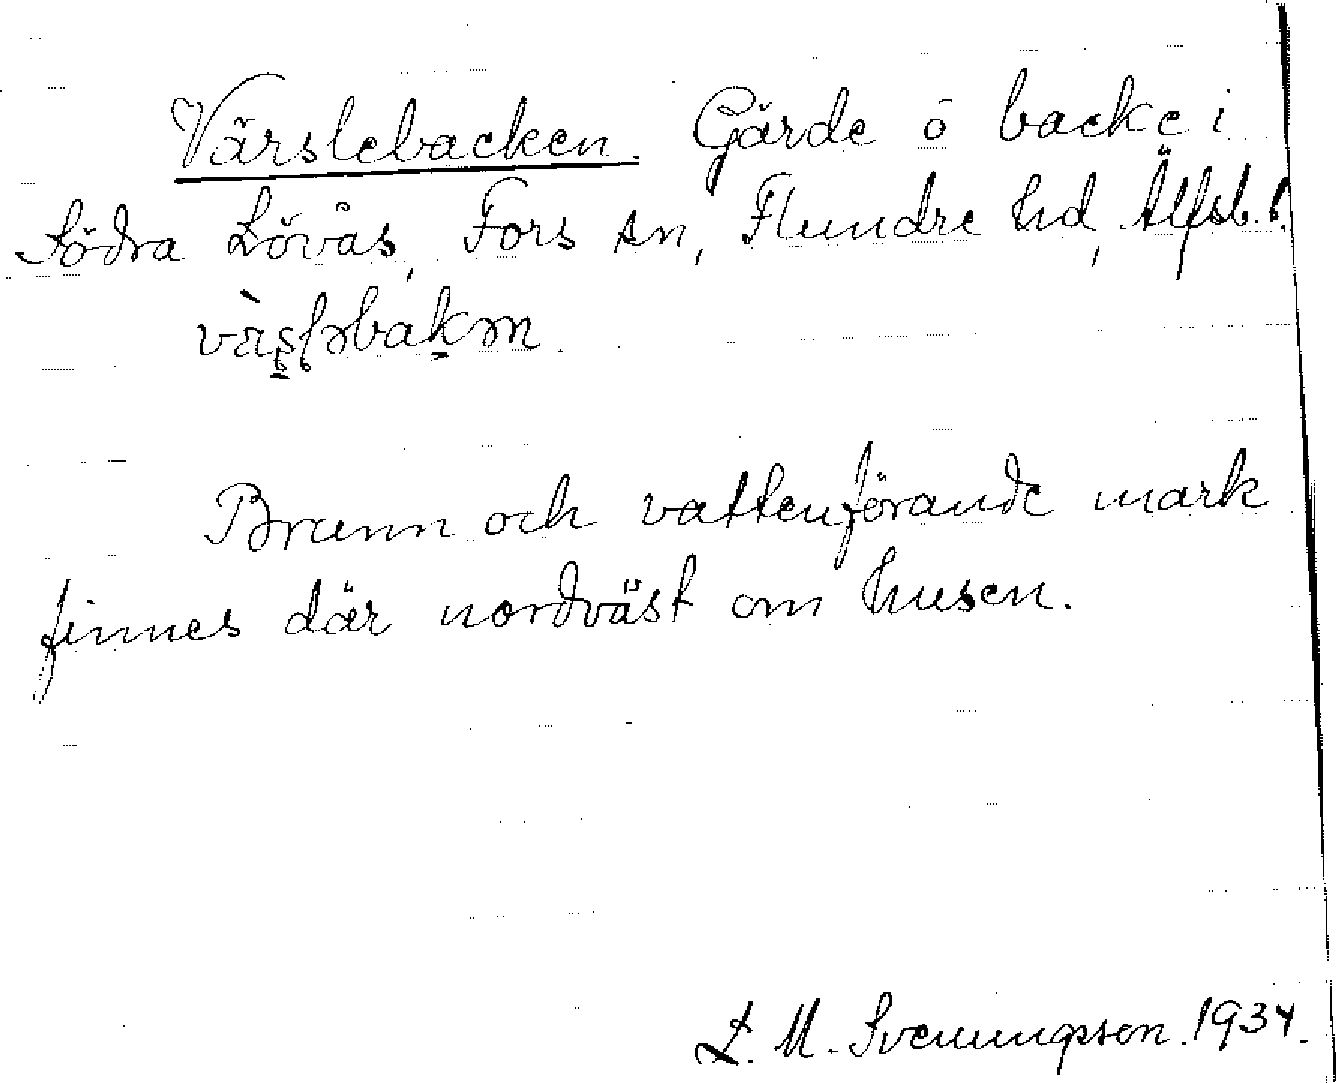 Värslebacken. Gärde o backe i
Södra Lövås, Fors sn, Flundre hd, Älfsb. l.
Brunn och vattenförande mark
finnes där nordväst om husen.
L. M. Svenungsson. 1934.